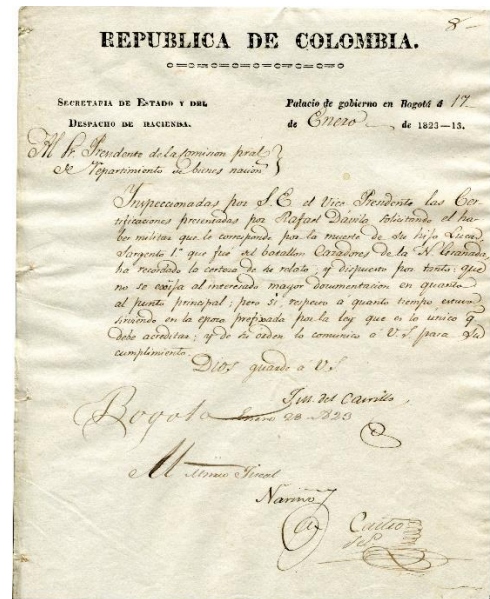 8
REPUBLICA DE COLOMBIA.
SECRETARIA DE ESTADO Y DEL
DESPACHO DE HACIENDA.
Palacio de gobierno en Bogotá á 17
de Enero de 1823—13.
Al Sr. Presidente de la comision pral
de repartimiento de bienes nacion
Inspeccionadas por S.E. el Vice Presidente las Cer-
tificaciones presentadas por Rafael Davila solicitando el ha-
ber militar que le corresponde por la muerte de su hijo Lucas
Sargento 1º que fué del batallon Cazadores de la N. Granada,
ha recordado la certeza de su relato; y dispuesto por tanto: que
no se exija al interesado mayor documentacion en quanto
al punto principal; pero sí respecto a quanto tiempo estuvo
sirviendo en la epoca prefixada por la ley que es lo unico q
debe acreditar; y de su orden lo comunico á V.S. para su
cumplimiento.
Dios guarde á V.S.
del Castillo
Bogota Enero 28 1823
Fiscal
Nariño
Castro